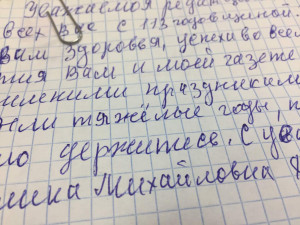 Уважаемая редакция
всех вас с 113 годовщиной
вам здоровья, успехов во всем
вам и моей газете
праздниками
тяжёлые годы,
держитесь. С
Михайловна